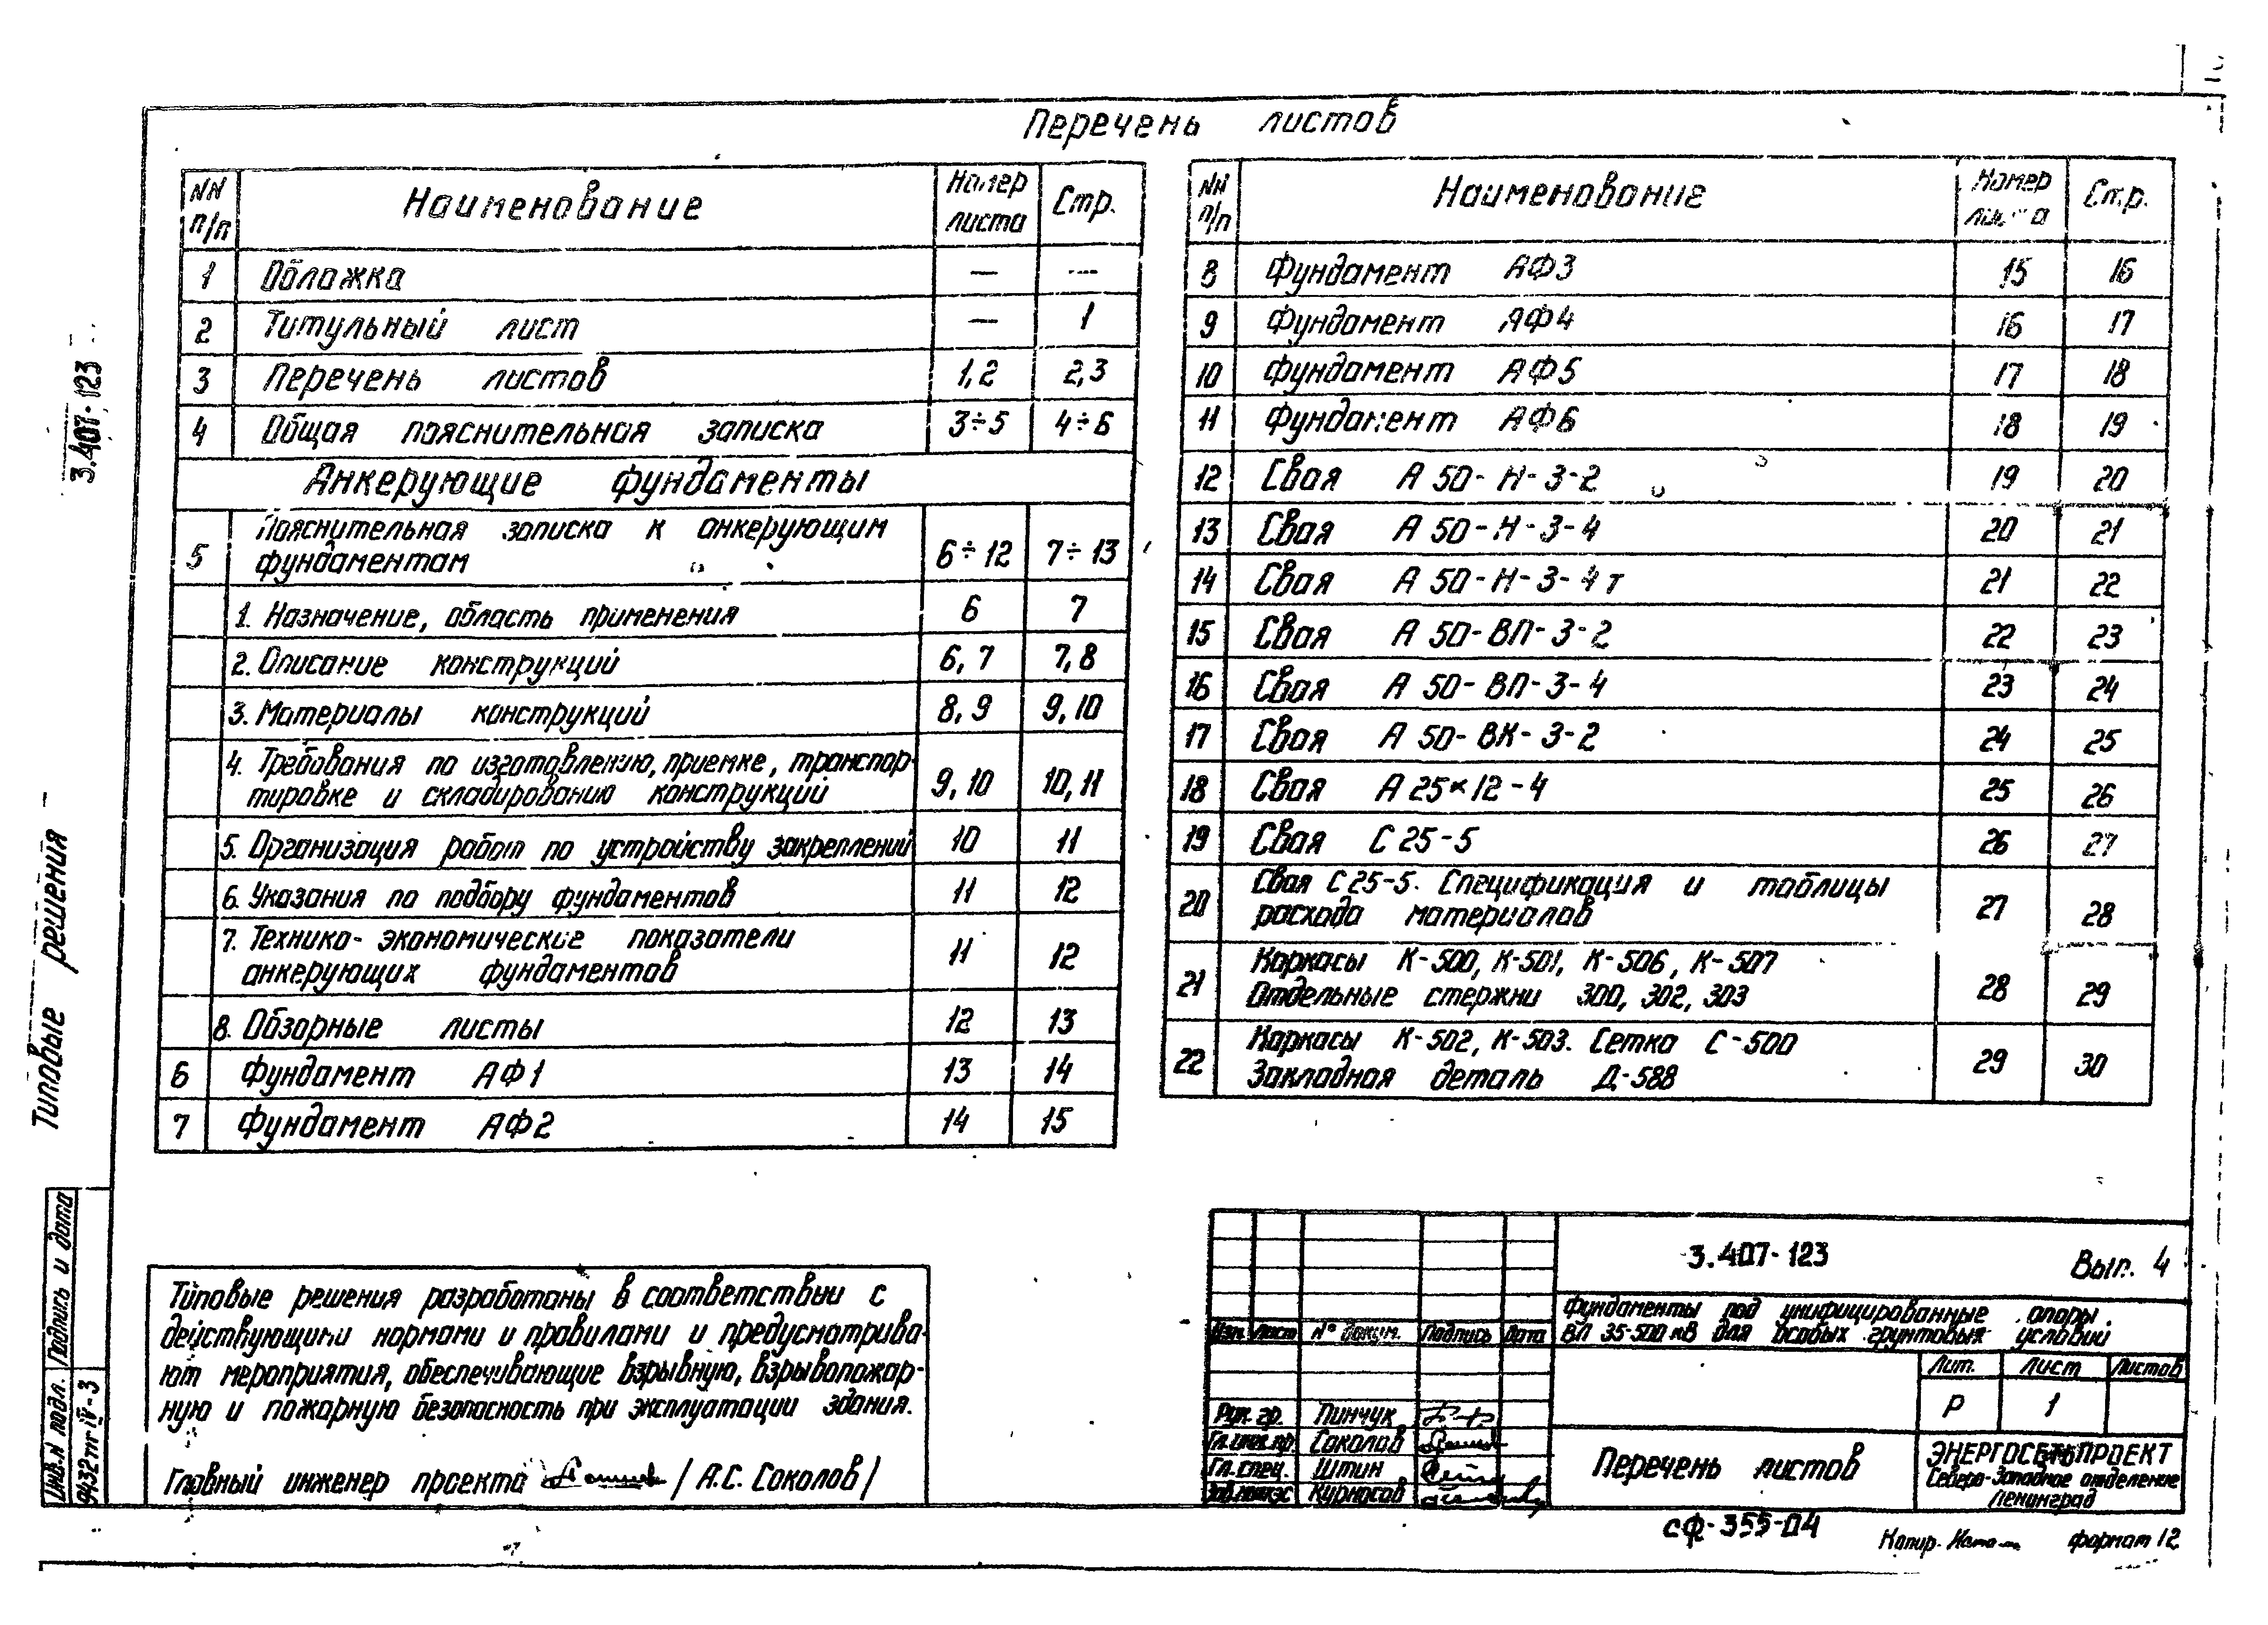 Перечень листов
NN п/п Наименование Номер листа Стр.
1 Обложка — —
2 Титульный лист — 1
3 Перечень листов 1,2 2,3
4 Общая пояснительная записка 3÷5 4÷6
Анкерующие фундаменты
5 Пояснительная записка к анкерующим
фундаментам 6÷12 7÷13
1. Назначение, область применения 6 7
2. Описание конструкций 6, 7 7, 8
3. Материалы конструкций 8, 9 9, 10
4. Требования по изготовлению, приемке, транспор-
тировке и складированию конструкций 9, 10 10, 11
5. Организация работ по устройству закреплений 10 11
6. Указания по подбору фундаментов 11 12
7. Технико-экономические показатели
анкерующих фундаментов 11 12
8. Обзорные листы 12 13
6 Фундамент АФ1 13 14
7 Фундамент АФ2 14 15
NN п/п Наименование Номер листа Стр.
8 Фундамент АФ3 15 16
9 Фундамент АФ4 16 17
10 Фундамент АФ5 17 18
11 Фундамент АФ6 18 19
12 Свая А 50-Н-3-2 19 20
13 Свая А 50-Н-3-4 20 21
14 Свая А 50-Н-3-4т 21 22
15 Свая А 50-ВП-3-2 22 23
16 Свая А 50-ВП-3-4 23 24
17 Свая А 50-ВК-3-2 24 25
18 Свая А 25×12-4 25 26
19 Свая С 25-5 26 27
20 Свая С 25-5. Спецификация и таблицы
расхода материалов 27 28
21 Каркасы К-500, К-501, К-506, К-507
Отдельные стержни 300, 302, 303 28 29
22 Каркасы К-502, К-503. Сетка С-500
Закладная деталь Д-588 29 30
Типовые решения 3.407-123
Инв.N подл. Подпись и дата
9432тм-IV-3
Типовые решения разработаны в соответствии с
действующими нормами и правилами и предусматрива-
ют мероприятия, обеспечивающие взрывную, взрывопожар-
ную и пожарную безопасность при эксплуатации здания.
Главный инженер проекта /А.С. Соколов/
3.407-123 Вып. 4
Фундаменты под унифицированные опоры
ВЛ 35-500 кВ для особых грунтовых условий
Изм. Лист № докум. Подпись Дата
Лит. Лист Листов
Р 1
Рук. гр. Пинчук
Гл. инж. пр. Соколов
Гл. спец. Штин
Курносов
Перечень листов
ЭНЕРГОСЕТЬПРОЕКТ
Северо-Западное отделение
Ленинград
сф-355-04
Копир. формат 12